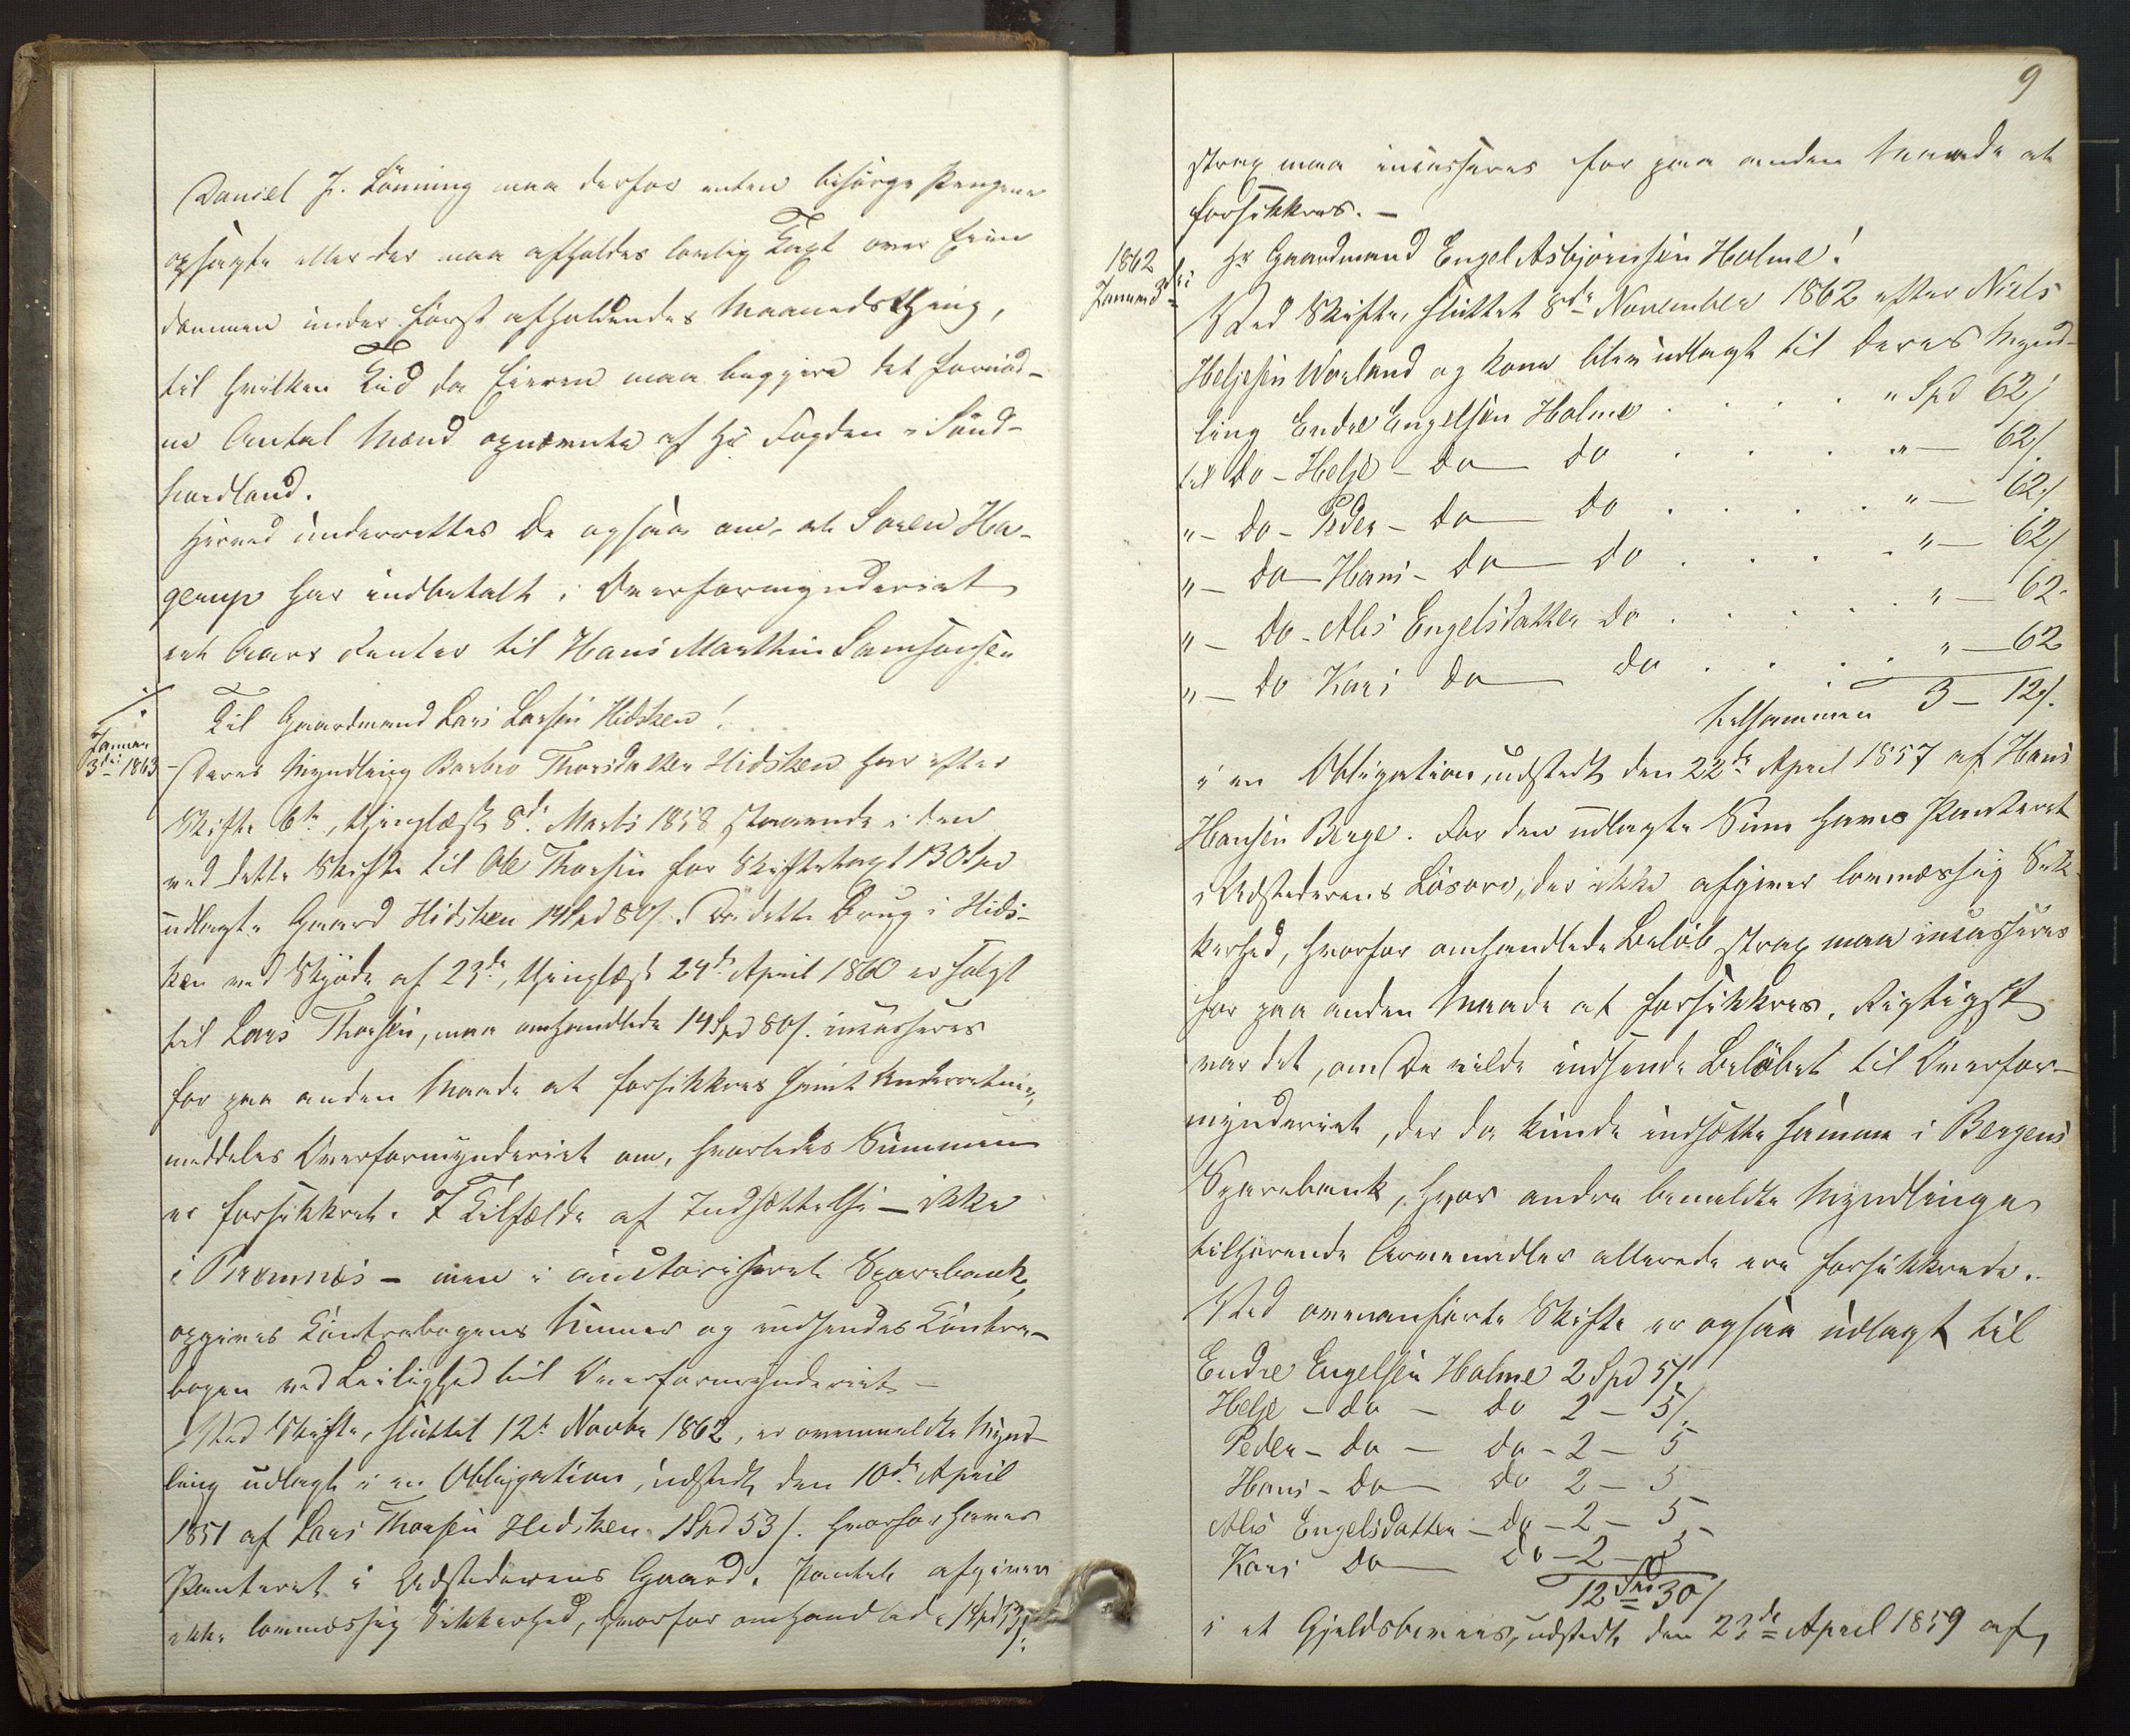 Daniel J. Lönning maa derfor enten besørge Pengene
opsagte eller der maa afholdes lovlig Taxt over Eien
dommen under först afholdendes Maanedsthing,
til hvilken Tid da Eieren maa begjere det fornöd-
ne Antal Mænd opnævnte af Hr Fogden i Sönd-
hordland.
Herved underrettes De ogsaa om, at Søren Ha-
gerup har indbetalt i Overformynderiet
et Aars Renter til Hans Marthin Samsonsen
Til Gaardmand Lars Larsen Hidsken!
Januar
3die 1863
Deres Myndling Barbro Thorsdatter Hidsken har efter
Skifte 6te, thinglæst 8de Marts 1858 staaende i den
ved dette Skifte til Ole Thorsen for Skiftetaxt 130 Spd
udlagte Gaard Hidsken 14 Spd 80 s. Da dette Brug i Hids-
ken ved Skjöde af 23de, thinglæst 24de April 1860 er solgt
til Lars Thorsen, maa omhandlede 14 Spd 80 s. incasseres
for paa anden Maade at forsikkres samt Underretning
meddeles Overformynderiet om, hvorledes Summen
er forsikkret. I Tilfælde af Indsættelse – ikke
i Bremnæs – men i auctoriseret Sparebank,
opgives Contrabogens Numer og indsendes Contra-
bogen ved Leilighed til Overformynderiet –
Ved Skifte, sluttet 12te Novbr 1862, er ovenmeldte Mynd-
ling udlagt i en Obligation, udstedt den 10de April
1851 af Lars Thorsen Hidsken 1 Spd 53 s. hvorfor haves
Panteret i Udstederens Gaard. Pantet afgiver
ikke lovmæssig Sikkerhed, hvorfor omhandlede 1 Spd 53 s.
9
strax maa incasseres for paa anden Maade at
forsikkres. –
1862
Januar 3die
Hr Gaardmand Engel Asbjörnsen Holme!
Ved Skifte, sluttet 8de November 1862 efter Niels
Heljesen Vorland og Kone blev udlagt til Deres Mynd-
ling Endre Engelsen Holme . . . . " Spd 62 s
til do – Helje – do – do . . . . " – 62 s
" – do – Peder – do – do . . . . " – 62 s
" – do – Hans – do – do . . . . " – 62 s
" – do – Alis Engelsdatter do . . . . " – 62
" – do Kari do – do . . . . " – 62
tilsammen 3 – 12 s.
i en Obligation, udstedt den 22de April 1857 af Hans
Hansen Berge. For den udlagte Sum haves Panteret
i Udstederens Lösøre, der ikke afgiver lovmæssig Sik-
kerhed, hvorfor omhandlede Belöb strax maa incasseres
for paa anden Maade at forsikkres. Rigtigst
var det, om De vilde indsende Belöbet til Overfor-
mynderiet, der da kunde indsætte samme i Bergens
Sparebank, hvor andre bemeldte Myndlinge
tilhörende Arvemidler allerede ere forsikkrede.
Ved ovenanförte Skifte er ogsaa udlagt til
Endre Engelsen Holme 2 Spd 5 s.
Helje – do – do 2 – 5 s.
Peder – do – do – 2 – 5
Hans – do – do 2 – 5
Alis Engelsdatter – do – 2 – 5
Kari do – do – 2 – 5
12 Spd 30 s
i et Gjeldsbeviis, udstedt den 23de April 1859 af